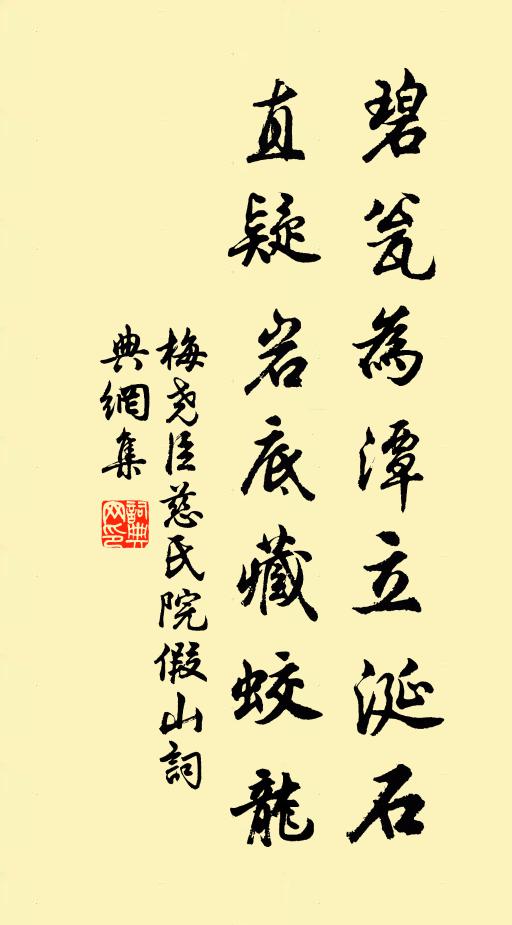 碧瓮為潭立涎石
直疑岩底藏蛟龍
梅尭臣慈氏院假山詞
典網集
詞典
网印